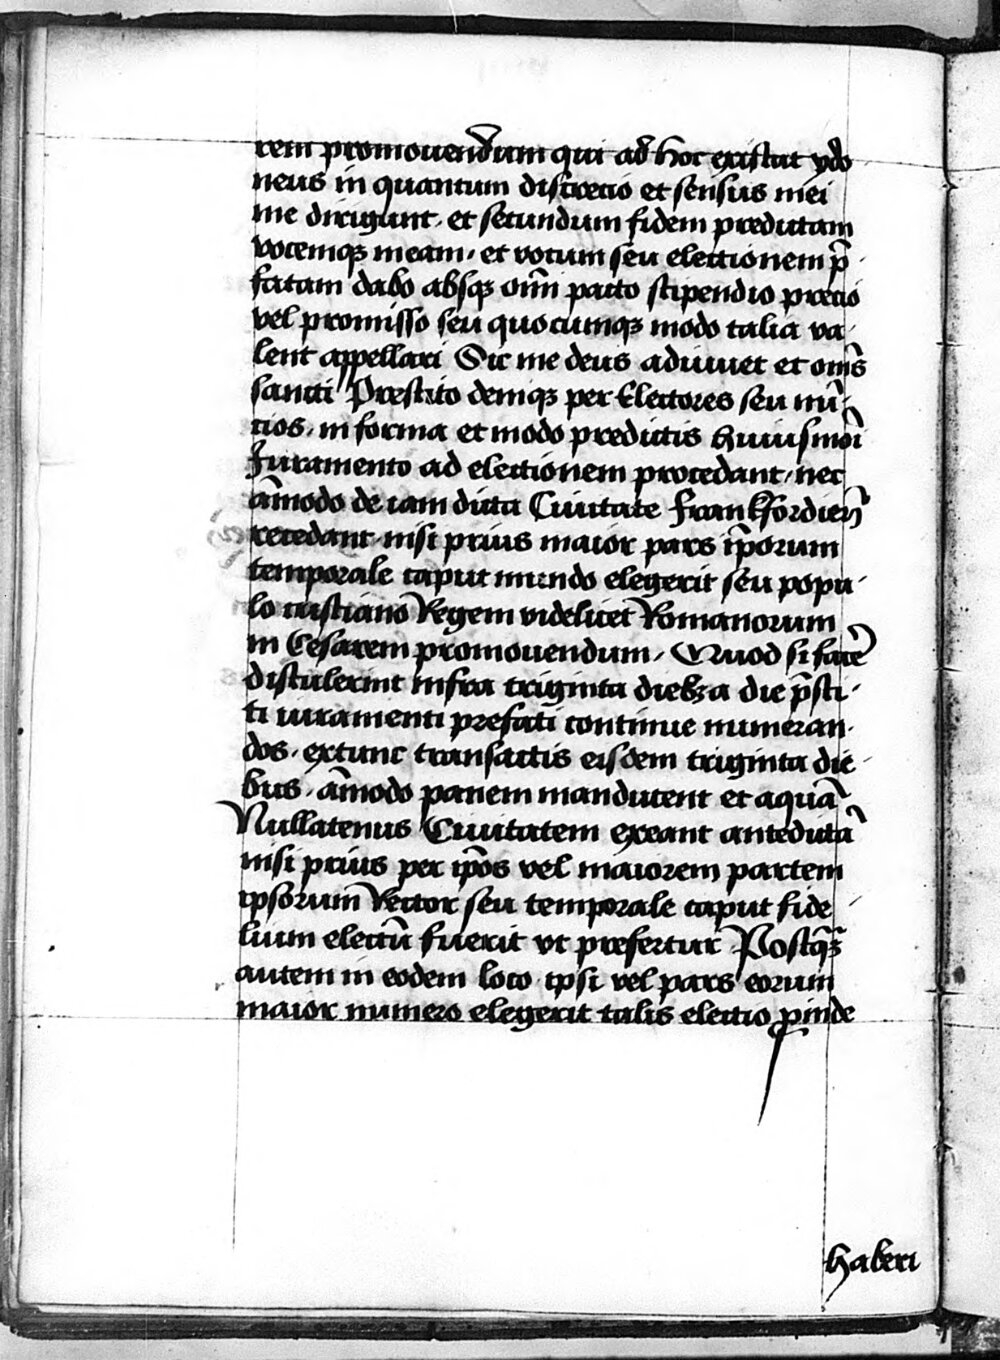 rem promouendum qui ad hoc existat ydo
neus in quantum discrecio et sensus mei
me dirigunt et secundum fidem predictam
vocemqꝫ meam et votum seu electionem p̄
fatam dabo absqꝫ om̄i pacto stipendio precio
vel promisso seu quocumqꝫ modo talia va-
lent appellari Sic me deus adiuuet et om̄s
sancti Prestito demiqꝫ per Electores seu nū-
cios in forma et modo predictis huiusmōi
Juramento ad electionem procedant nec
āmodo de iam dicta Ciuitate Franckfordien̄
recedant nisi prius maior pars ip̄orum
temporale caput mundo elegerit seu popu-
lo cristiano Regem videlicet Romanorum
in Cesarem promouendum Quod si facē
distulerint infra triginta diebꝫ a die p̄sti-
ti iuramenti prefati continue numeran-
dos extunc transactis eisdem triginta die-
bus āmodo panem manducent et aquā
Nullatenus Ciuitatem exeant antedictā
nisi prius per ip̄os vel maiorem partem
ipsorum Rector seu temporale caput fide-
lium electū fuerit vt prefertur Postq̄ꝫ
autem in eodem loco ipsi vel pars eorum
maior numero elegerit talis electio ꝑinde
haberi